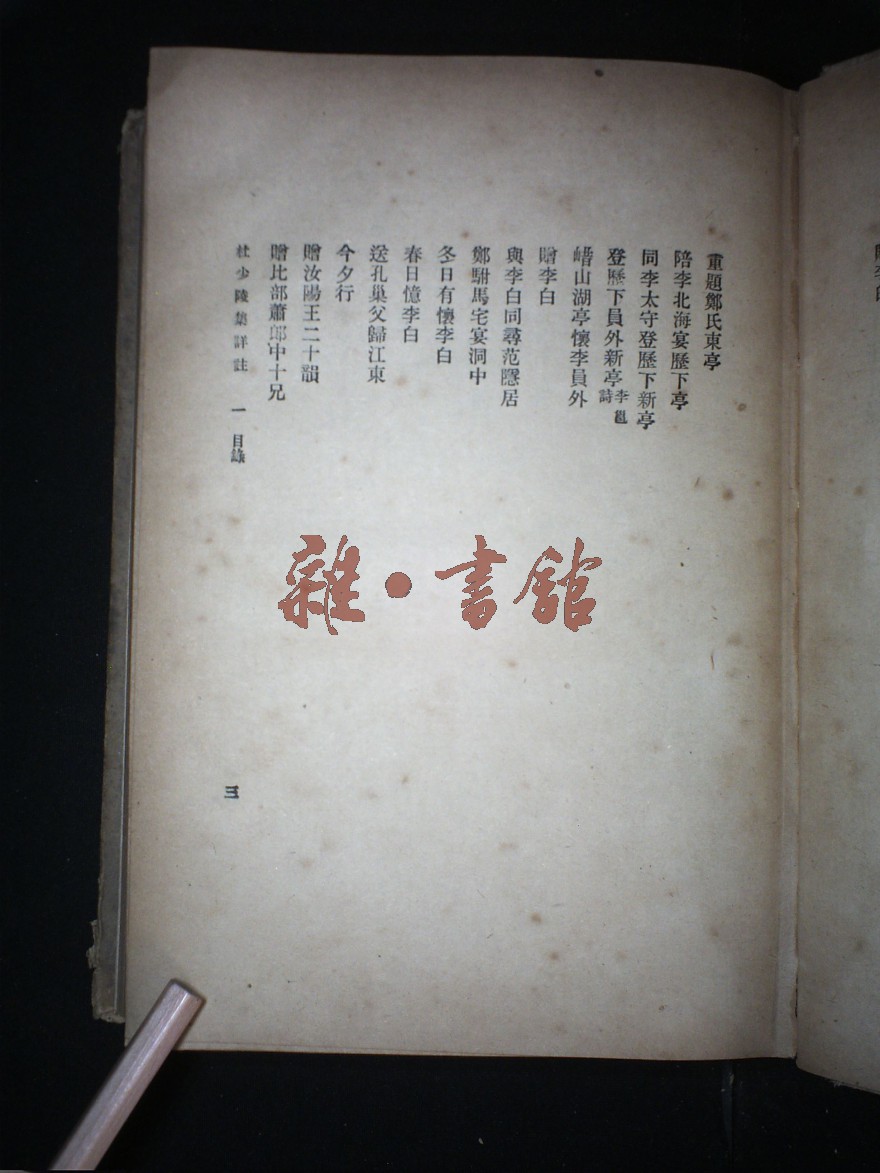 重題鄭氏東亭
陪李北海宴歷下亭
同李太守登歷下新亭
登歷下員外新亭 李邕詩
嵴山湖亭懷李員外
贈李白
與李白同尋范隱居
鄭駙馬宅宴洞中
冬日有懷李白
春日憶李白
送孔巢父歸江東
今夕行
贈汝陽王二十韻
贈比部蕭郎中十兄
杜少陵集詳註 一 目錄
三
雜·書館